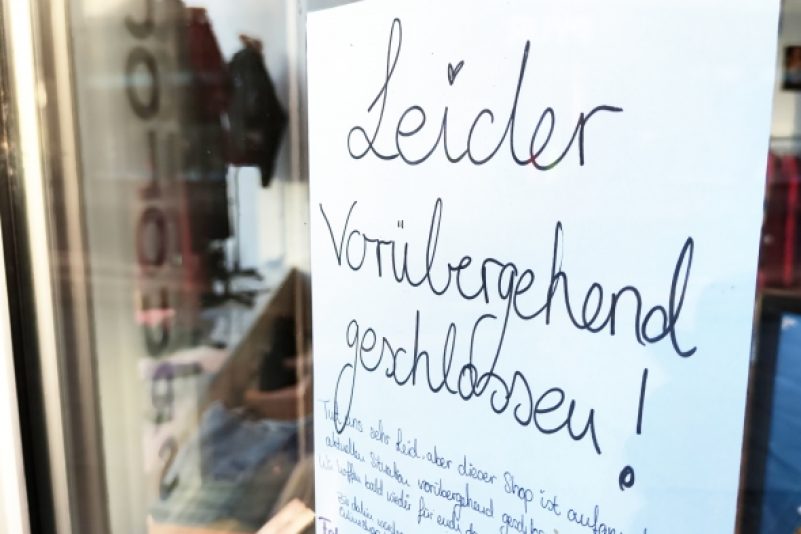 Leider
Vorübergehend
geschlossen!
Tut uns sehr leid, aber dieser Shop ist aufgrund
aktuellen Situation vorübergehend geschlo
Wir hoffen bald wieder für euch da
Bis dahin
Onlineshop